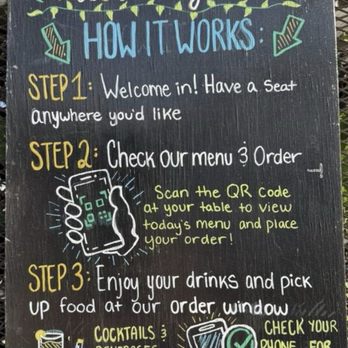 HOW IT WORKS:
STEP 1: Welcome in! Have a Seat
anywhere you'd like
STEP 2: Check our menu & Order
Scan the QR code
at your table to view
today's menu and place
your order!
STEP 3: Enjoy your drinks and pick
up food at our order window
COCKTAILS &
CHECK YOUR
PHONE FOR